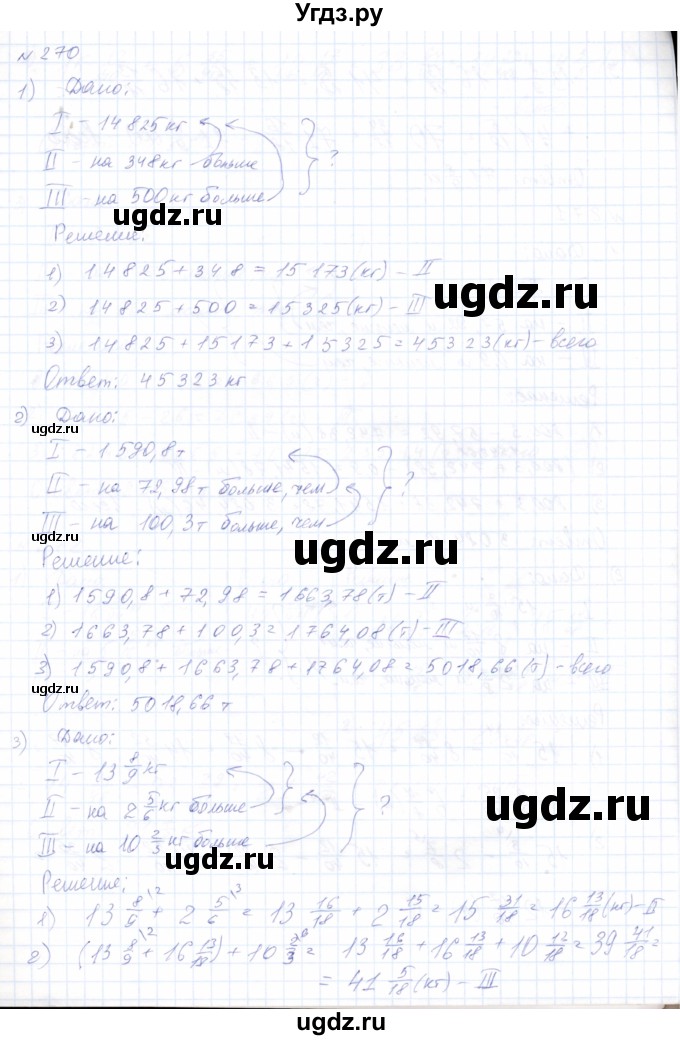 Угдз.ру
№ 270
1) Дано:
I – 14 825 кг
II – на 348 кг больше
III – на 500 кг больше
}?
Решение:
1) 14825 + 348 = 15 173 (кг) – II
2) 14825 + 500 = 15325 (кг) – III
3) 14825 + 15173 + 15325 = 45323 (кг) – всего
Ответ: 45323 кг
2) Дано:
I – 1590,8 т
II – на 72,98 т больше, чем
III – на 100,3 т больше, чем
}?
Решение:
1) 1590,8 + 72,98 = 1663,78 (т) – II
2) 1663,78 + 100,3 = 1764,08 (т) – III
3) 1590,8 + 1663,78 + 1764,08 = 5018,66 (т) – всего
Ответ: 5018,66 т
3) Дано:
I – 13 8/9 кг
II – на 2 5/6 кг больше
III – на 10 2/3 кг больше
}?
Решение:
1) 13 8/9\2 + 2 5/6\3 = 13 16/18 + 2 15/18 = 15 31/18 = 16 13/18 (кг) – II
2) (13 8/9\2 + 16 13/18) + 10 2/3\6 = 13 16/18 + 16 13/18 + 10 12/18 = 39 41/18 =
= 41 5/18 (кг) – III
ugdz.ru
ugdz.ru
ugdz.ru
ugdz.ru
ugdz.ru
ugdz.ru
ugdz.ru
ugdz.ru
ugdz.ru
ugdz.ru